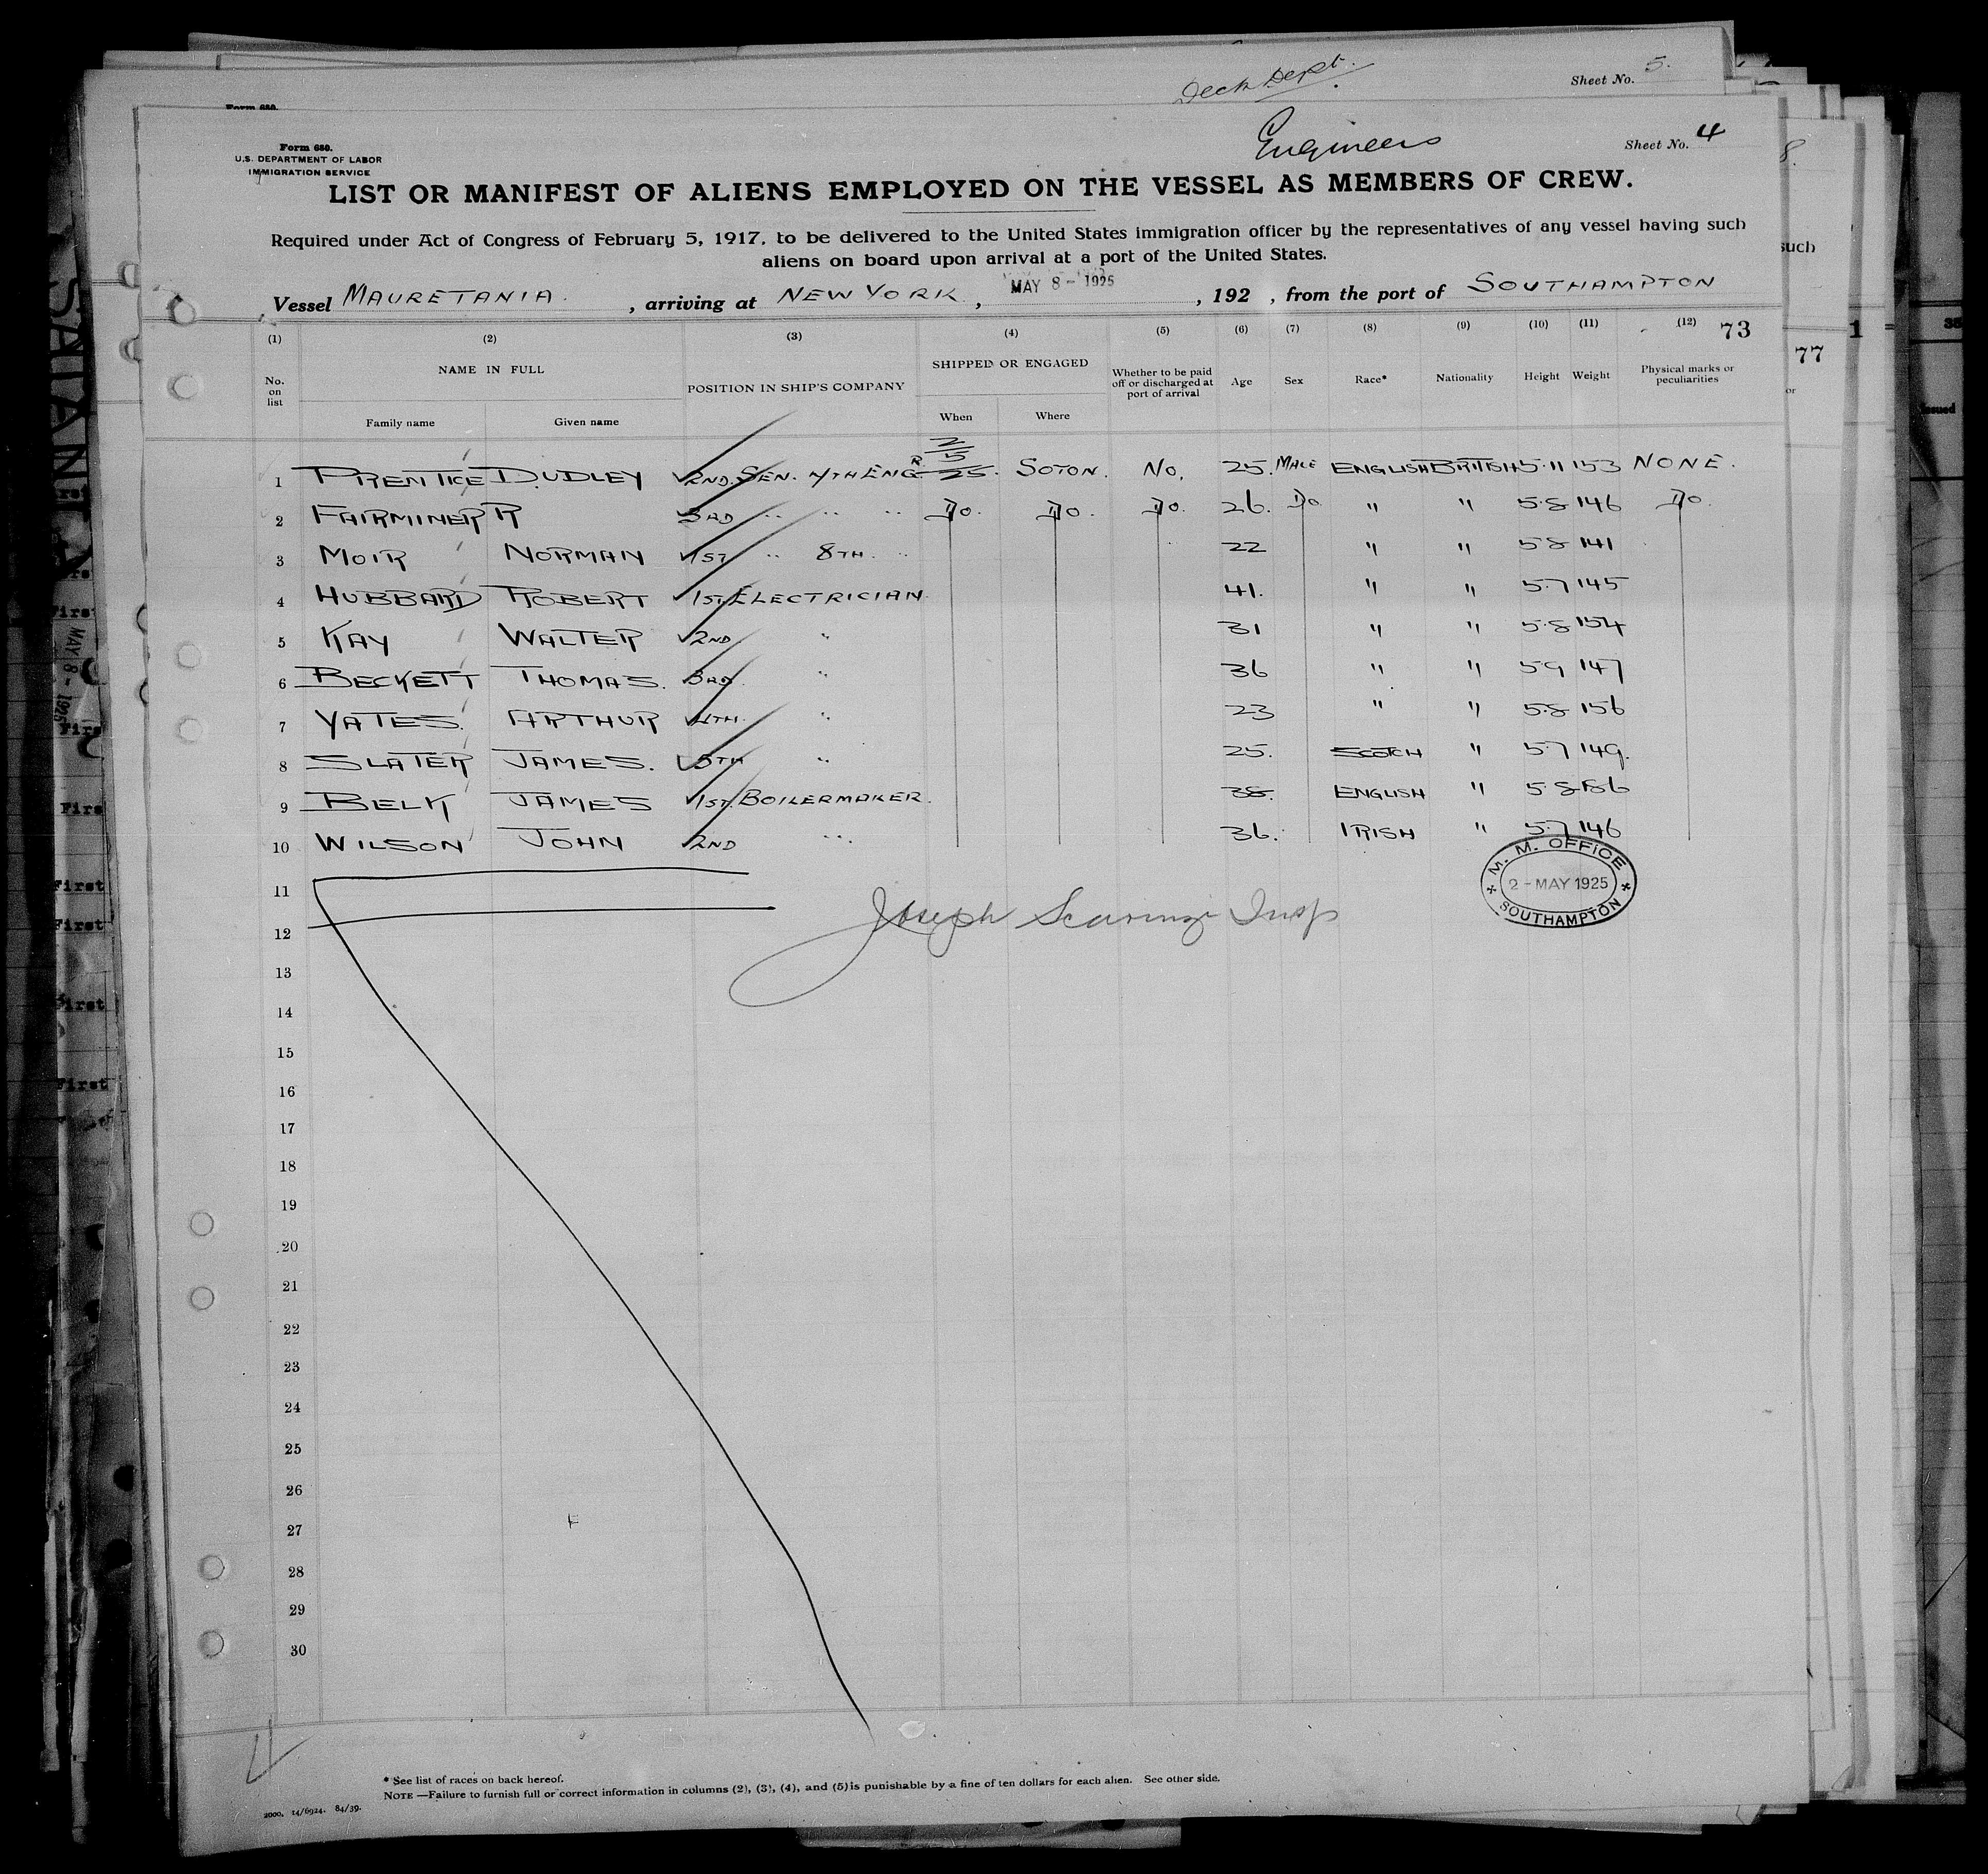 Deck Dept.
Sheet No. 5.
Form 680.
Engineers
Sheet No. 4
Form 680.
U.S. DEPARTMENT OF LABOR
IMMIGRATION SERVICE
LIST OR MANIFEST OF ALIENS EMPLOYED ON THE VESSEL AS MEMBERS OF CREW.
Required under Act of Congress of February 5, 1917, to be delivered to the United States immigration officer by the representatives of any vessel having such
aliens on board upon arrival at a port of the United States.
Vessel MAURETANIA. , arriving at NEW YORK , MAY 8 - 1925 , 192 , from the port of SOUTHAMPTON
(1) (2) (3) (4) (5) (6) (7) (8) (9) (10) (11) (12) 73
No. on list NAME IN FULL POSITION IN SHIP'S COMPANY SHIPPED OR ENGAGED Whether to be paid off or discharged at port of arrival Age Sex Race* Nationality Height Weight Physical marks or peculiarities
Family name Given name When Where
1 PRENTICE DUDLEY 2ND. SEN. 7TH ENGR 2/5/25. SOTON. No. 25. MALE ENGLISH BRITISH 5·11 153 NONE.
2 FAIRMINER R 3RD " " " Do. Do. Do. 26. Do " " 5·8 146 Do.
3 MOIR NORMAN 1ST " 8TH " 22 " " 5·8 141
4 HUBBARD ROBERT 1ST. ELECTRICIAN. 41. " " 5·7 145
5 KAY WALTER 2ND " 31 " " 5·8 154
6 BECKETT THOMAS. 3RD " 36 " " 5·9 147
7 YATES. ARTHUR 4TH. " 23 " " 5·8 156
8 SLATER JAMES. 5TH " 25. SCOTCH " 5·7 149.
9 BELK JAMES 1ST. BOILERMAKER. 38. ENGLISH " 5·8 186
10 WILSON JOHN 2ND " 36. IRISH " 5·7 146
M. M. OFFICE
2 - MAY 1925
SOUTHAMPTON
11
Joseph Insp
12
13
14
15
16
17
18
19
20
21
22
23
24
25
26
27
28
29
30
* See list of races on back hereof.
NOTE —Failure to furnish full or correct information in columns (2), (3), (4), and (5) is punishable by a fine of ten dollars for each alien. See other side.
2000. 14/6924. 84/39.
8.
such
77
or
1
38
Issued
MAY 8 - 1925
First
First
First
First
First
First